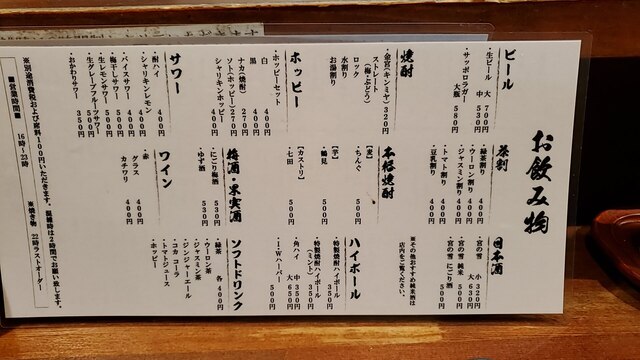 お飲み物
ビール
・生ビール 大 700円
中 530円
・サッポロラガー
大瓶 580円
焼酎
・金宮(キンミヤ)320円
ストレート
(梅・ぶどう)
ロック
水割り
お湯割り
ホッピー
・ホッピーセット
白 400円
黒 400円
ナカ(焼酎) 270円
ソト(ホッピー)270円
シャリキンホッピー
400円
サワー
・酎ハイ 400円
・シャリキンレモン
400円
・バイスサワー 400円
・梅干しサワー 400円
・生レモンサワー 500円
・生グレープフルーツサワー
500円
・おかわりサワー 350円
茶割
・緑茶割り 400円
・ウーロン割り 400円
・ジャスミン割り 400円
・トマト割り 400円
・豆乳割り 400円
本格焼酎
【麦】
・ちんぐ 500円
【芋】
・鶴見 500円
【カストリ】
・七田 500円
梅酒・果実酒
・にごり梅酒 530円
・ゆず酒 530円
ワイン
・赤
グラス 400円
カチワリ 400円
日本酒
・宮の雪 小 320円
大 630円
・宮の雪 純米 500円
・宮の雪 にごり酒
500円
※その他おすすめ純米酒は
店内をご覧ください。
ハイボール
・特製焼酎ハイボール
350円
・特製焼酎ハイボール
(ミント) 350円
・角ハイ 中 350円
大 650円
・I・Wハーパー
500円
ソフトドリンク
・緑茶 各400円
・ウーロン茶
・ジャスミン茶
・ジンジャーエール
・コカ コーラ
・トマトジュース
・ホッピー
※別途酒費税および席料100円いただきます。混雑時は2時間でお願い致します。
■営業時間■ 16時〜23時 ※焼き物 22時ラストオーダー